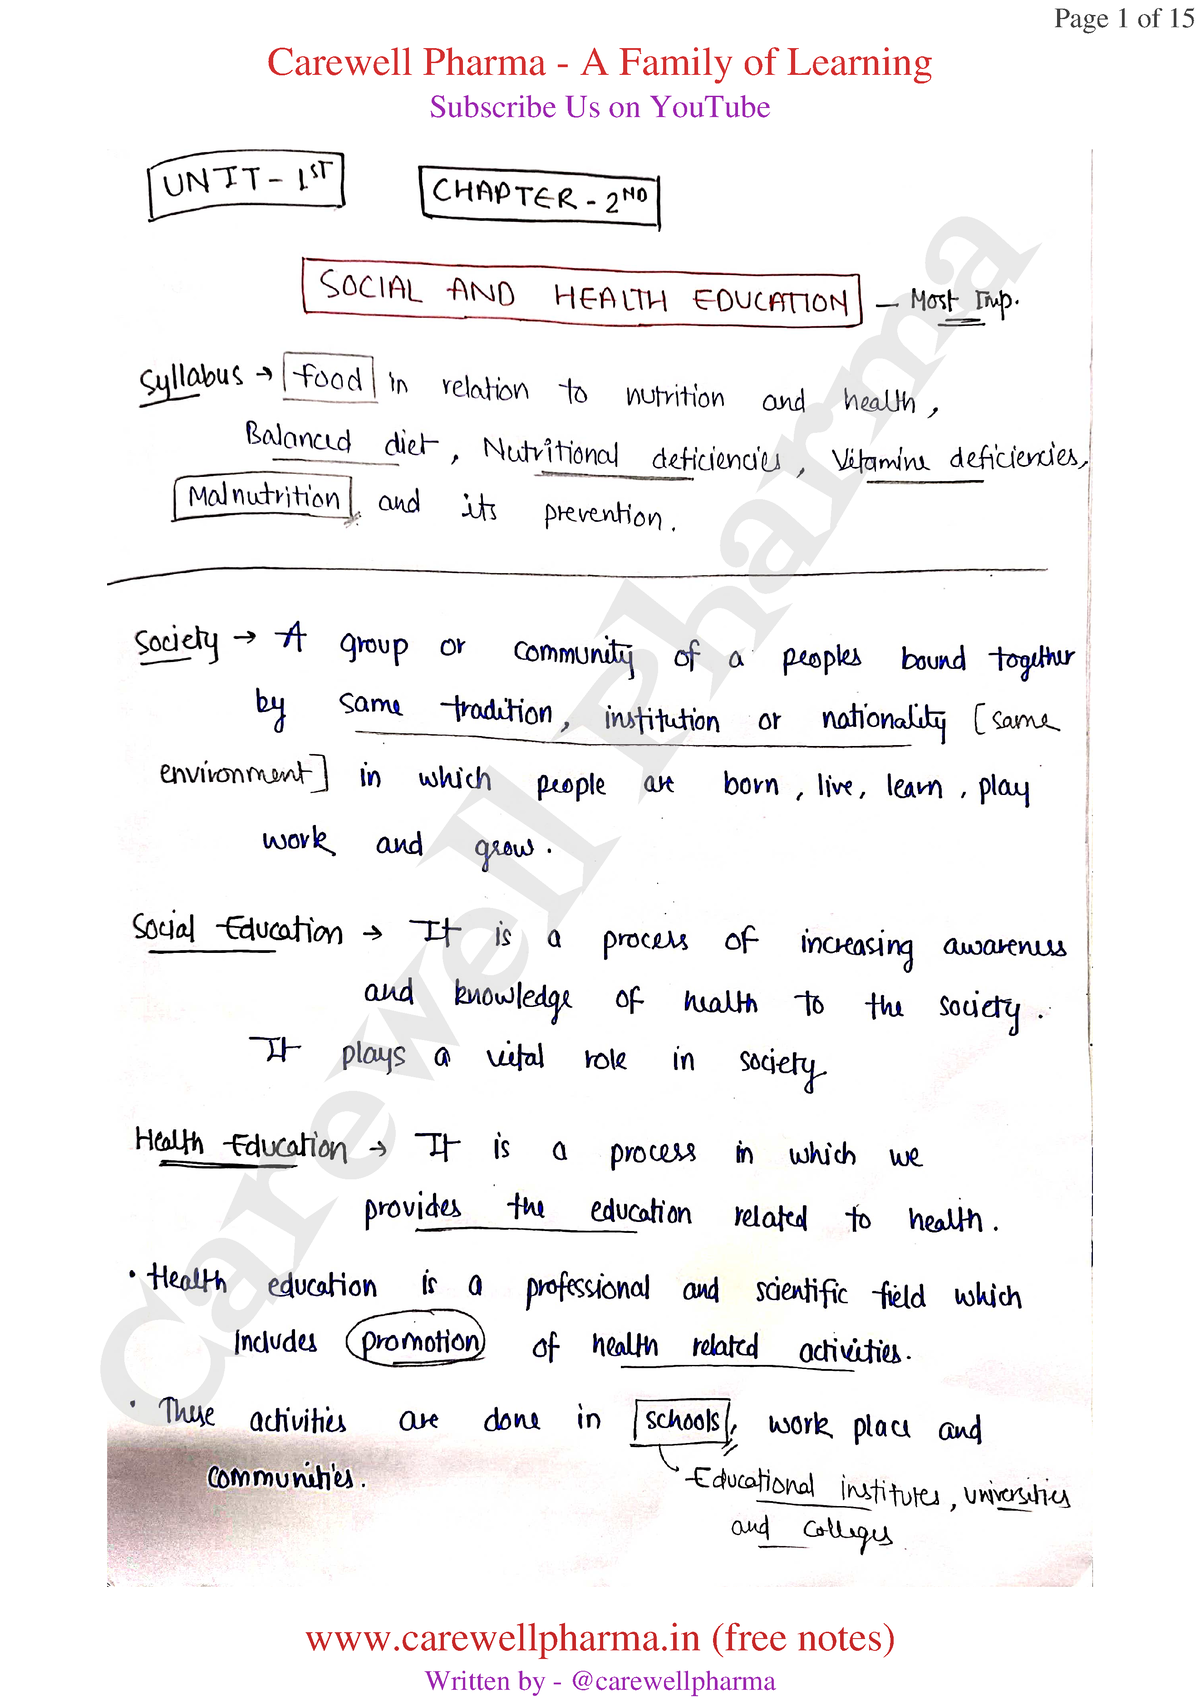 Page 1 of 15
Carewell Pharma - A Family of Learning
Subscribe Us on YouTube
UNIT - 1ST
CHAPTER - 2ND
SOCIAL AND HEALTH EDUCATION — Most Imp.
Syllabus → food in relation to nutrition and health,
Balanced diet, Nutritional deficiencies, Vitamine deficiencies,
Malnutrition and its prevention.
Society → A group or community of a peoples bound together
by same tradition, institution or nationality [same
environment] in which people are born, live, learn, play
work and grow.
Social Education → It is a process of increasing awareness
and knowledge of health to the society.
It plays a vital role in society
Health Education → It is a process in which we
provides the education related to health.
• Health education is a professional and scientific field which
includes promotion of health related activities.
• These activities are done in schools, work place and
communities.
Educational institutes, universities
and colleges
Carewell Pharma
www.carewellpharma.in (free notes)
Written by - @carewellpharma